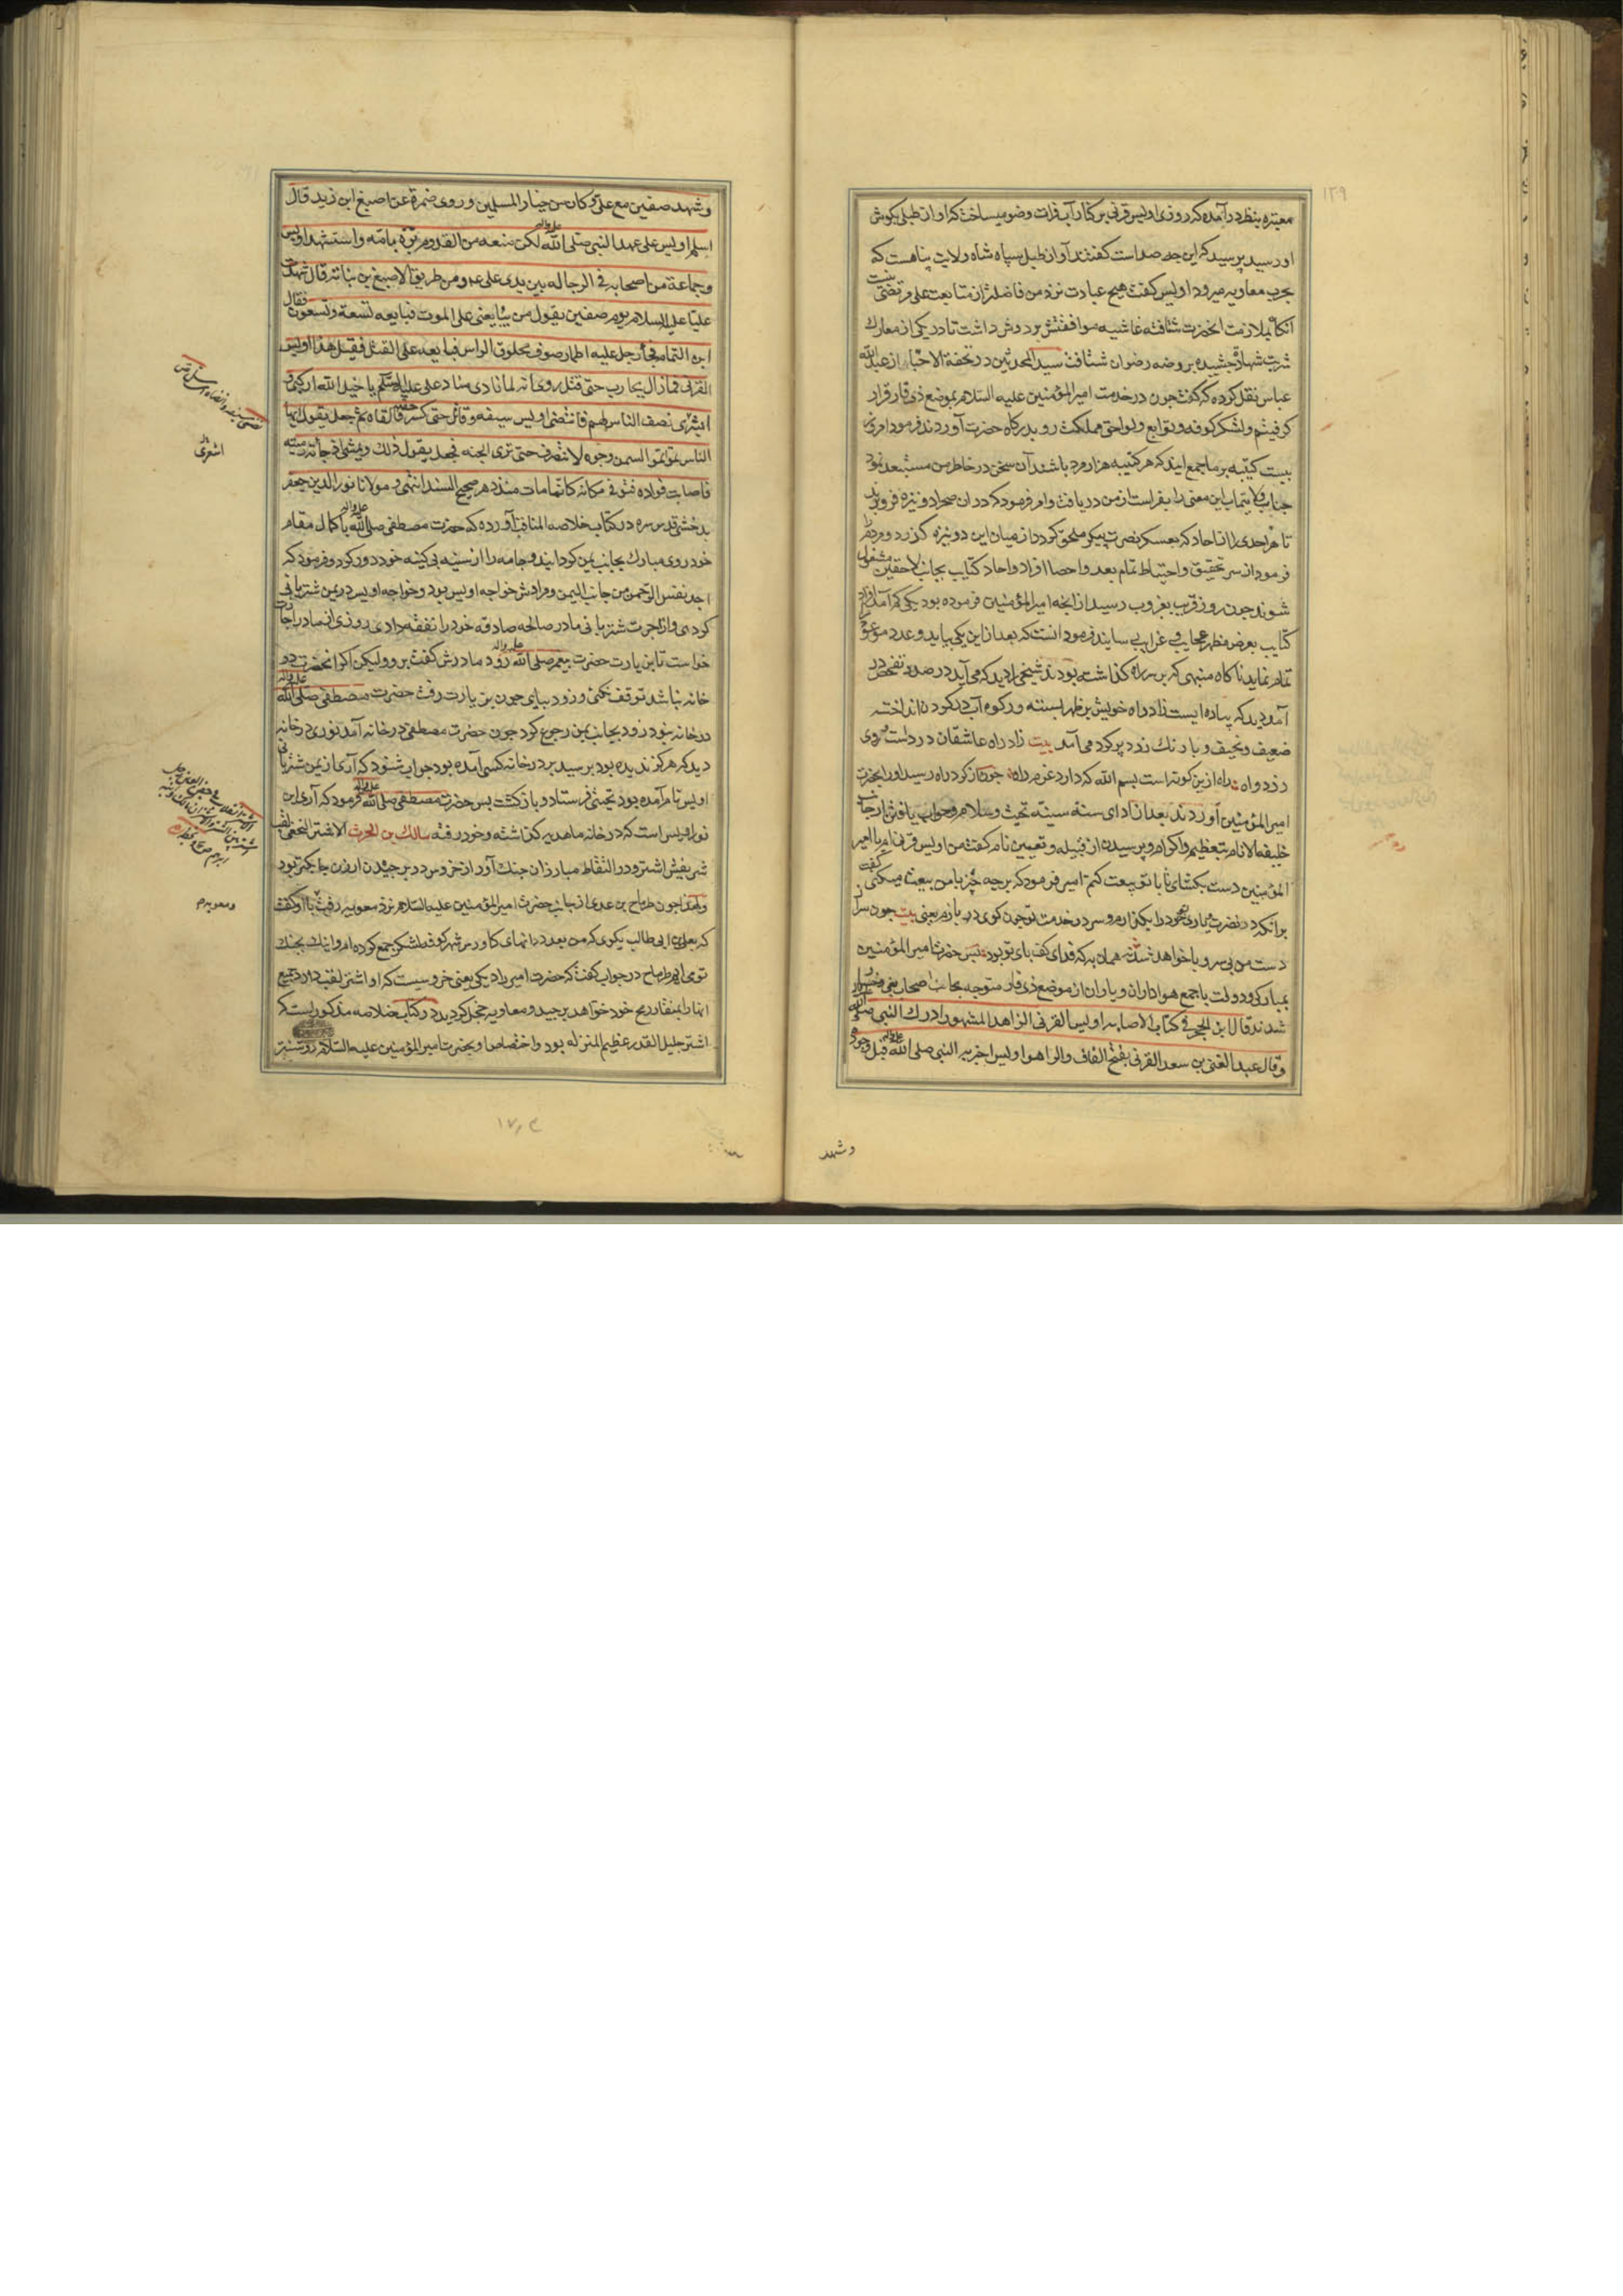 معتبره بنظر درآمده که روزی اویس قرنی بر کنار آب فرات وضو میساخت که اواز طبلی بکوش
او رسید پرسید که این چه صداست کفتند آواز طبل سپاه شاه ولایت پناهست که
بحرب معاویه میرود اویس کفت هیچ عبادت نزد من فاضلتر از متابعت علی مرتضی نیست
آنکاه بملازمت انحضرت شتافته غاشیه موافقتش بر دوش داشت تا در یکی از معارک
شربت شهادت چشیده بروضه رضوان شتافت سید المحدثین در تحفة الاحبا از عبد الله
عباس نقل کرده که کفت چون در خدمت امیر المؤمنین علیه السلام بموضع ذی قار قرار
کرفتیم و لشکر کوفه و توابع و لواحق مملکت رو بدرکاه حضرت آوردند فرمود امروز
بیست کتیبه بر ما جمع ایند که هر کتیبه هزار مرد باشند آن سخن در خاطر من مستبعد نمود
جناب ولایتماب این معنی را بفراست از من دریافت و امر فرمود که دران صحرا دو نیزه فرو برند
تا هر احدی را از احاد که بعسکر نصرت پیکر ملحق کردد از میان این دو نیزه کذرد و مردم را
فرمود از سر تحقیق و احتیاط تمام بعد و احصا افراد و احاد کتایب بجانب لاحقین مشغول
شوند چون روز قریب بغروب رسید از انچه امیر المؤمنین فرموده بود یکی کم آمد
کتایب بعرض مظهر عجایب و غرایب رسانیدند فرمود انست که بعد ازین یکی بیاید و عدد موعود
تمام نماید ناکاه منبهی که بر سر راه کذاشته بودند شیخی را دید که می آید در صدد تفحص در
آمد دید که پیاده ایست زاد راه خویش بر ظهر بسته و رکوه آب در کردن انداخته
ضعیف و نحیف و با رنک زرد پر کرد می آمد بیت زاد راه عاشقان درداست و روی
زرد و اه راه ازین کونه است بسم الله که دارد عزم راه چون از کرد راه رسید او را بحضرت
امیر المؤمنین آوردند بعد از ادای سنت سنیه تحیت و سلام و جواب یافتن از جانب
خلیفه الانام بتعظیم و اکرام و پرسیدن از قبیله و تعیین نام کفت من اویس قرنی ام یا امیر
المؤمنین دست بکشای تا با تو بیعت کنم امیر فرمود که بر چه چیز با من بیعت میکنی کفت
برانکه در نصرت و یاری خود را بکذارم و سر در خدمت تو چون کوی در بازم یعنی بیت چون سر از
دست من بی سر و پا خواهد شد همان به که فدای کف پای تو بود پس حضرت امیر المؤمنین
بمبارکی و دولت با جمع هواداران و یاران از موضع ذی قار متوجه بجانب اصحاب بغی
شدند قال ابن الحجر فی کتاب الاصابه اویس القرنی الزاهد المشهور ادرک النبی صلی الله
وقال عبد الغنی بن سعد القرنی بفتح القاف والراء هو اویس اخبر به النبی صلی الله علیه واله قبل وجوده
وشهد
وشهد صفین مع علی و کان من خیار المسلمین و روی ضمرة عن اصبغ ابن زید قال
اسلم اویس علی عهد النبی صلی الله علیه واله لکن منعه من القدوم برّه بامه واستشهد اویس
وجماعة من اصحابه فی الرجاله بین یدی علی عم ومن طریق الاصبغ بن نباته قال شهدت
علیا علیه السلام یوم صفین یقول من یبایعنی علی الموت فبایعه تسعة وتسعون فقال
این التمام فجاء رجل علیه اطمار صوف محلوق الراس فبایعه علی القتل فقیل هذا اویس
القرنی فما زال یحارب حتی قتل روی انه لما نادی مناد علی علیه السلم یا خیل الله ارکبی و
ابشری نصف الناس لهم فانتضی اویس سیفه وقاتل حتی کسر جفنه فالقاه ثم جعل یقول ایها
الناس تموا تموا لیتمن وجوه لا تنصرف حتی تری الجنه فجعل یقول ذلک و یمشی اذ جأته رمیته
فاصابت فواده فتوفی مکانه کانما مات منذ دهر صحیح السند انتهی و مولانا نور الدین جعفر
بدخشی قدس سره در کتاب خلاصه المناقب آورده که حضرت مصطفی صلی الله علیه واله با کمال مقام
خود روی مبارک بجانب یمن کردانید و جامه را از سینه بی کینه خود دور کرد و فرمود که
اجد نفس الرحمن من جانب الیمن و مرادش خواجه اویس بود و خواجه اویس در یمن شتربانی
کردی و از اجرت شتربانی مادر صالحه صادقه خود را نفقه دادی روزی از مادر اجازت
خواست تا بزیارت حضرت پیغمبر صلی الله علیه واله رود مادرش کفت برو ولیکن اکر انحضرت در
خانه نباشد توقف نکنی و زود بیای چون بزیارت رفت حضرت مصطفی صلی الله علیه واله
در خانه نبود زود بجانب یمن رجوع کرد چون حضرت مصطفی در خانه آمد نوری در خانه
دید که هرکز ندیده بود پرسید بر در خانه کسی آمده بود جواب شنود که آری از یمن شتربانی
اویس نام آمده بود تحیتی فرستاد و باز کشت پس حضرت مصطفی صلی الله علیه واله فرمود که آری این
نور اویس است که در خانه ما هدیه کذاشته و خود رفته مالک بن الحرث الاشتر النخعی لقب
شریفش اشتر و در التقاط مبارزان جنک آور از خروس در بر چیدن ارزن چابکتر بود
و لهذا چون طرماح بن عدی از جانب حضرت امیر المؤمنین علیه السلام نزد معویه رفت با او کفت
که بعلی ابی طالب بکوی که من بعدد دانهای کاورس شهر کوفه لشکر جمع کرده ام و اینک بجنک
توی ایم طرماح در جواب کفت که حضرت امیر را دیکی یعنی خروسیست که او اشتر لقب دارد جمیع
انها را بمنقار ریح خود خواهد برچید و معاویه خجل کردید در کتاب خلاصه مذکور است که
اشتر جلیل القدر عظیم المنزله بود و اختصاص او بحضرت امیر المؤمنین علیه السلام روشنتر
اشعری